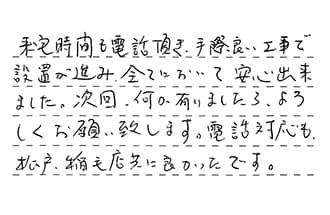 来宅時間も電話頂き、手際良い工事で
設置が進み、全てにおいて安心出来
ました。次回、何か有りましたら、よろ
しくお願い致します。電話対応も、
松戸、稲毛店共に良かったです。